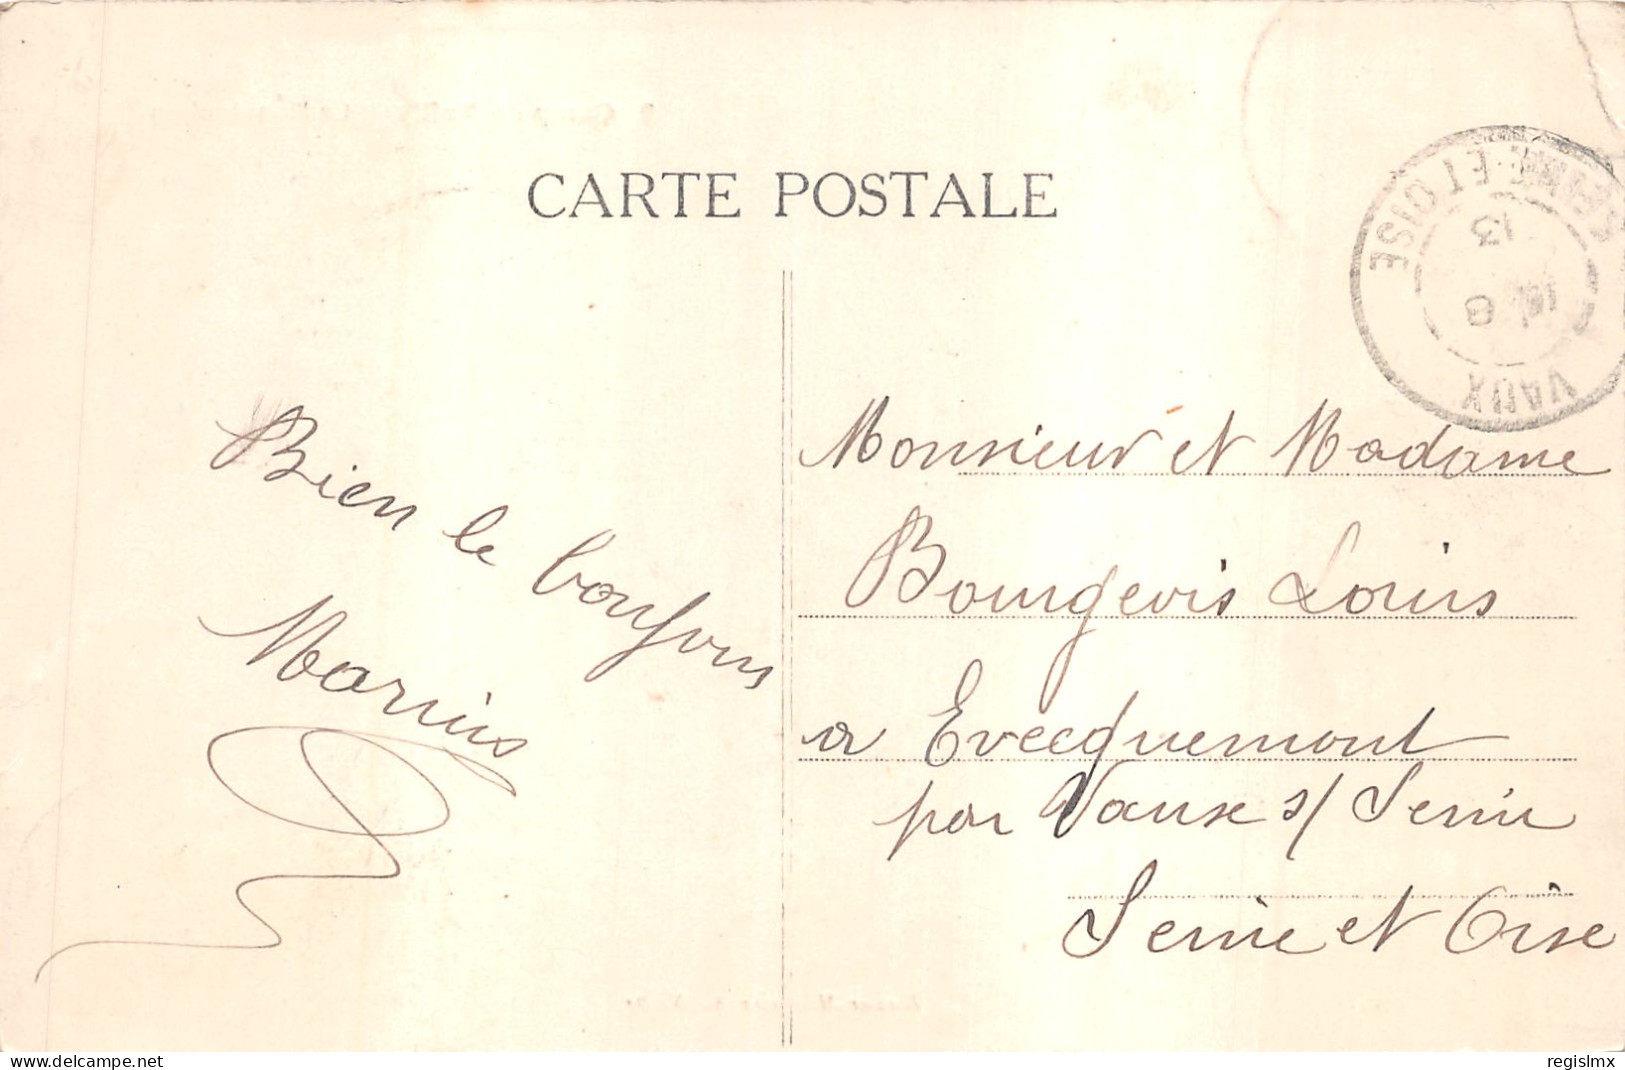 CARTE POSTALE
SEINE-ET-OISE
13
8
VAUX
Bien le bonjour
Marius
Monsieur et Madame
Bourgeois Louis
a Evecquemont
par Vaux s/ Seine
Seine et Oise
www.delcampe.net
regislmx